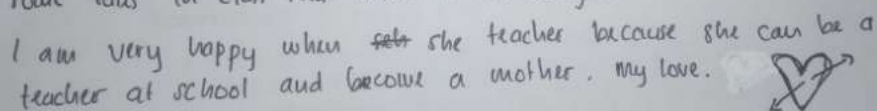 I am very happy when she teacher because she can be a
teacher at school and become a mother. my love.